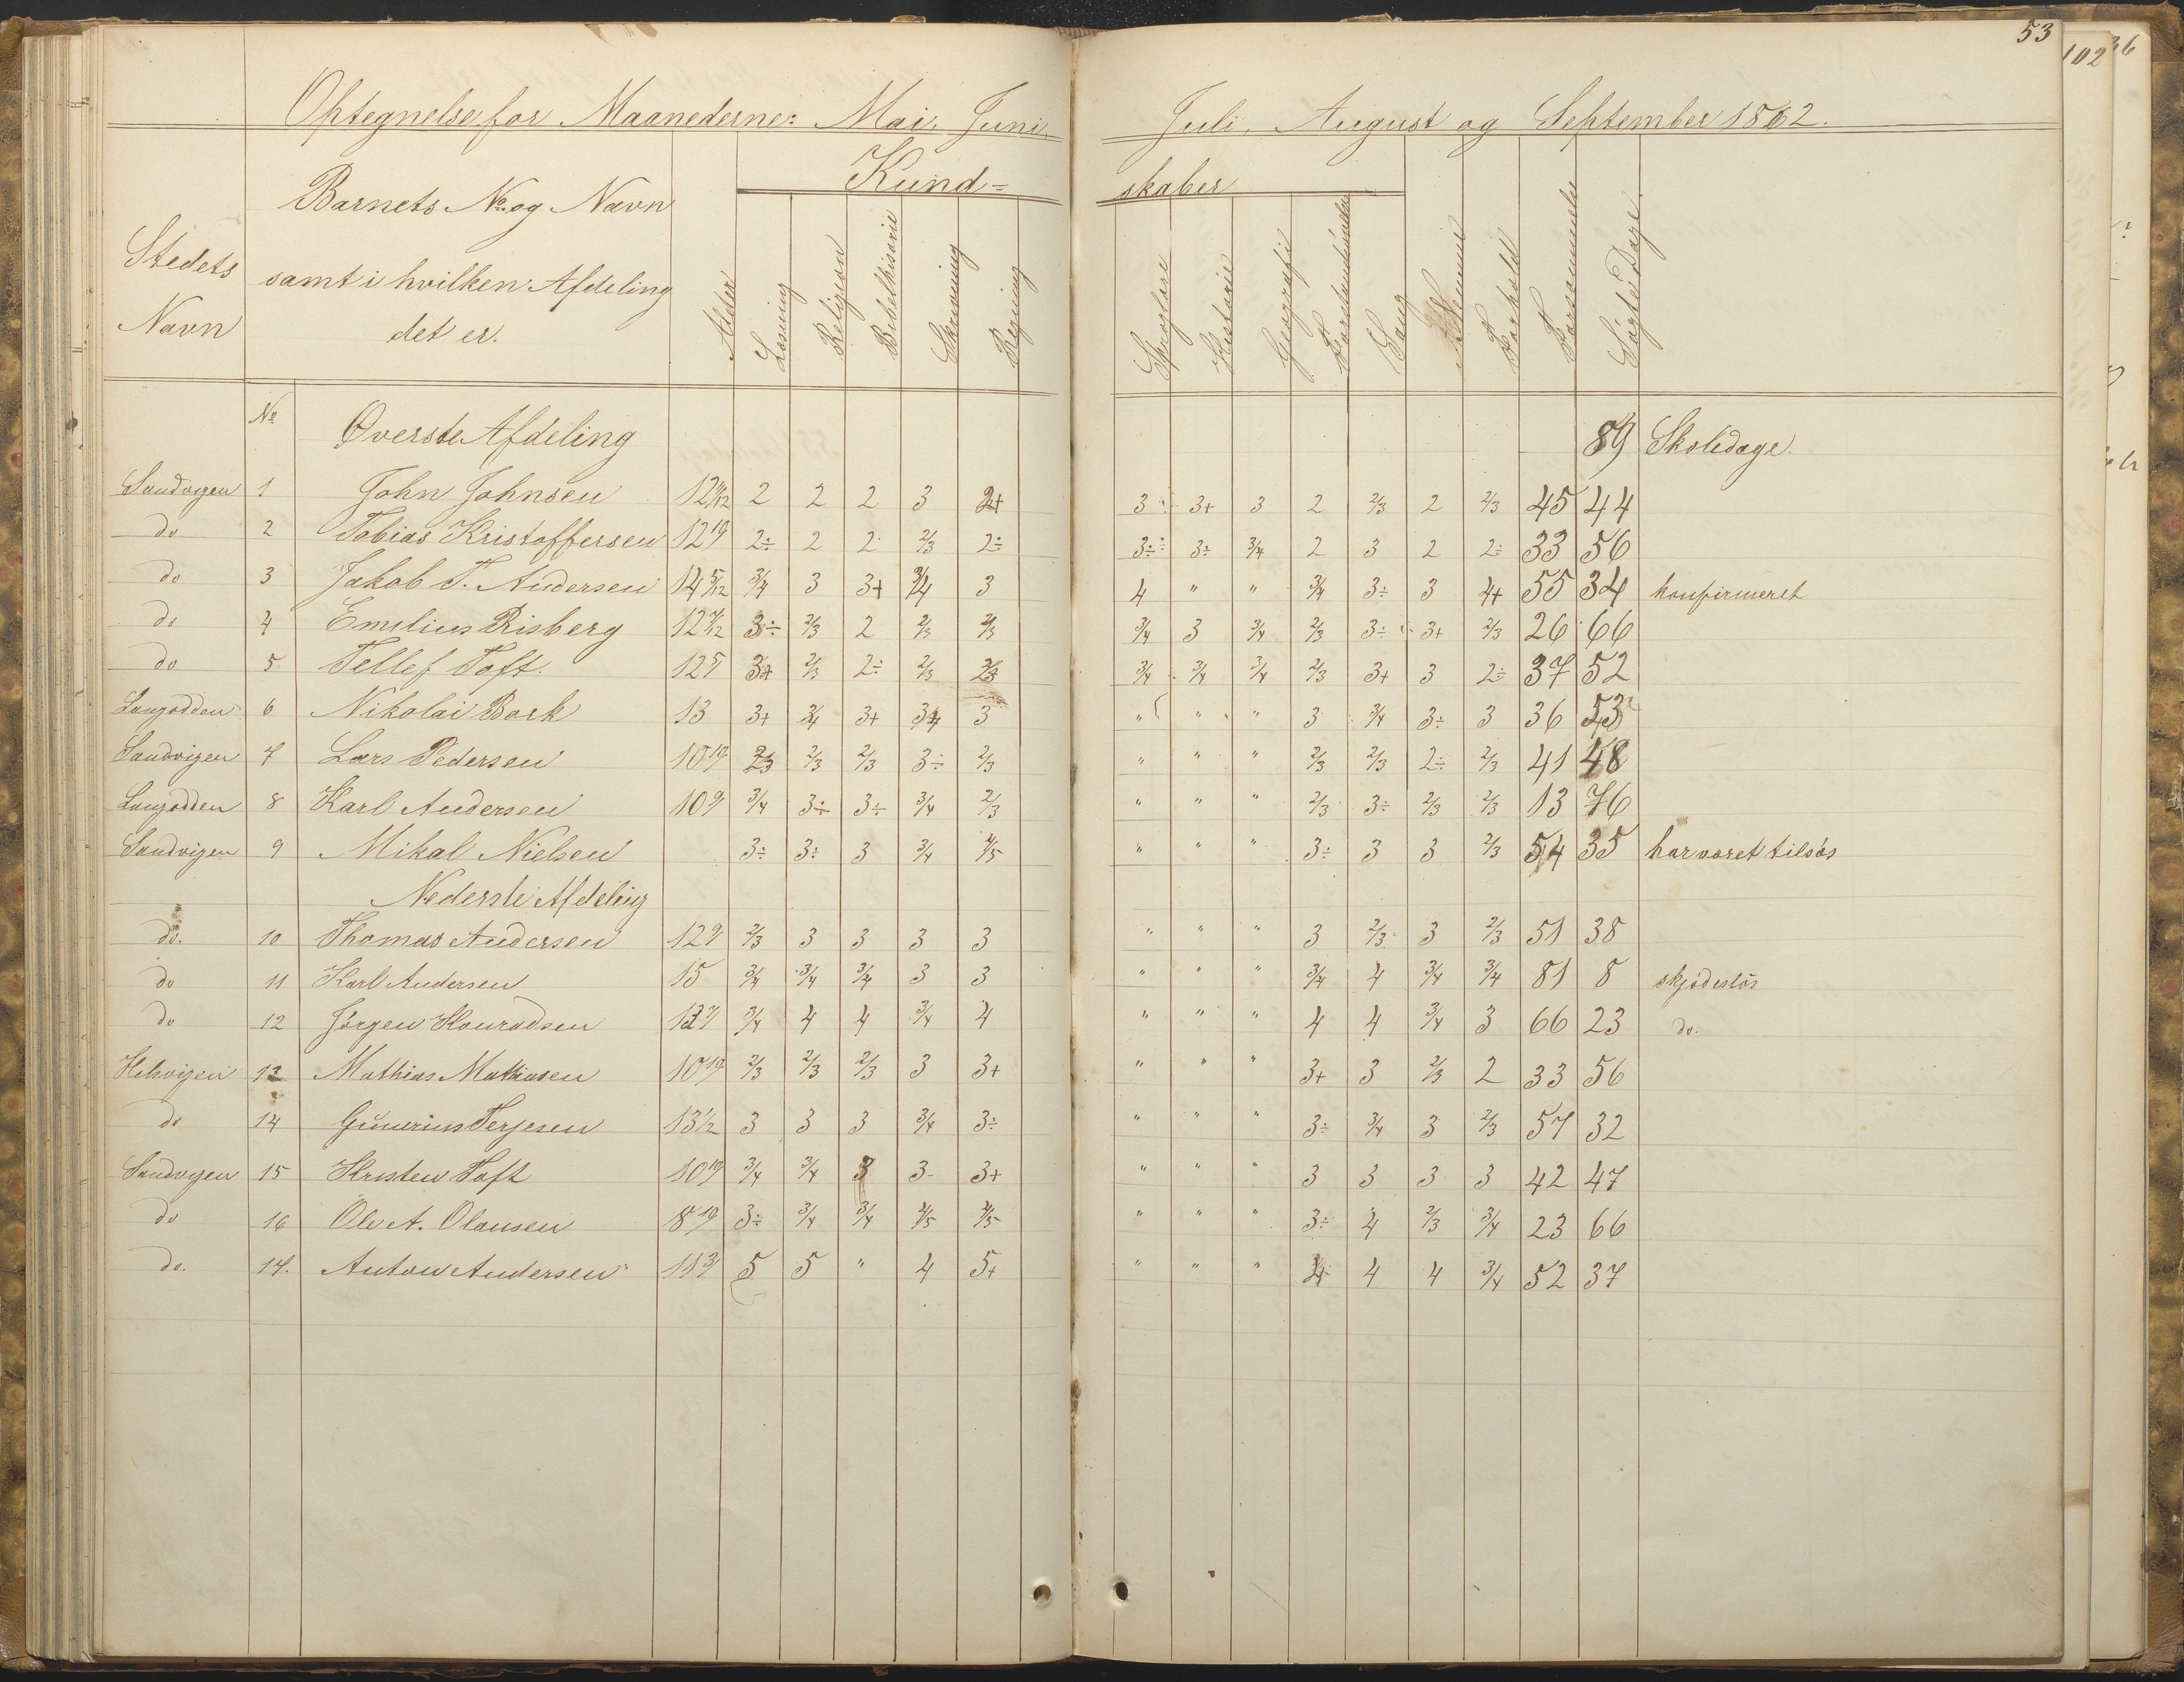 53
102
36
Optegnelse for Maanederne: Mai, Juni, Juli, August og September 1862.
Stedets Navn
Barnets No. og Navn samt i hvilken Afdeling det er.
Alder
Kund=skaber
Læsning
Religion
Bibelhistorie
Skrivning
Regning
Sproglære
Historie
Geografi
Sang
Nemme
Forhold
Forsømmelse
Søgte Dage
No. Øverste Afdeling 89 Skoledage.
Sandvigen 1 John Johnsen 12 2 2 2 3 2+ 3÷ 3+ 3 2 2/3 2 2/3 45 44
do 2 Tobias Kristoffersen 12 10/ 2÷ 2 2 2/3 2÷ 3÷ 3÷ 3/4 2 3 2 2÷ 33 56
do 3 Jakob T. Andersen 14 5/12 3/4 3 3+ 3/4 3 4 " " 3/4 3÷ 3 4+ 55 34 konfirmeret
do 4 Emilius Risberg 12 7/12 3÷ 2/3 2 2/3 2/3 3/4 3 3/4 2/3 3÷ 3+ 2/3 26 66
do 5 Tellef Toft. 12 5/ 3+ 2/3 2÷ 2/3 2/3 3/4 3/4 3/4 2/3 3+ 3 2÷ 37 52
Langodden 6 Nikolai Bork 13 3+ 3/4 3+ 3/4 3 " " " 3 3/4 3÷ 3 36 53
Sandvigen 7 Lars Pedersen 10 10/ 2/3 2/3 2/3 3÷ 2/3 " " " 2/3 2/3 2÷ 2/3 41 48
Langodden 8 Karl Andersen 10 9/ 3/4 3÷ 3÷ 3/4 2/3 " " " 2/3 3÷ 2/3 2/3 13 76
Sandvigen 9 Mikal Nielsen 3÷ 3÷ 3 3/4 4/5 " " " 3÷ 3 3 2/3 54 35 har været tilsøs
Nederste Afdeling
do. 10 Thomas Andersen 12 9/ 2/3 3 3 3 3 " " " 3 2/3 3 2/3 51 38
do 11 Karl Andersen 15 3/4 3/4 3/4 3 3 " " " 3/4 4 3/4 3/4 81 8 skjødesløs
do 12 Jørgen Konradsen 13 7/ 3/4 4 4 3/4 4 " " " 4 4 3/4 3 66 23 do.
Helsvigen 13 Mathias Mathiasen 10 10/ 2/3 2/3 2/3 3 3+ " " " 3+ 3 2/3 2 33 56
do 14 Gunerius Terjesen 13 1/2 3 3 3 3/4 3÷ " " " 3÷ 3/4 3 2/3 57 32
Sandvigen 15 Kristen Toft 10 10/ 3/4 3/4 3 3- 3+ " " " 3 3 3 3 42 47
do 16 Ole A. Olausen 8 10/ 3÷ 3/4 3/4 4/5 4/5 " " " 3÷ 4 2/3 3/4 23 66
do. 17. Anton Andersen 11 3/ 5 5 " 4 5+ " " " 4 4 4 3/4 52 37